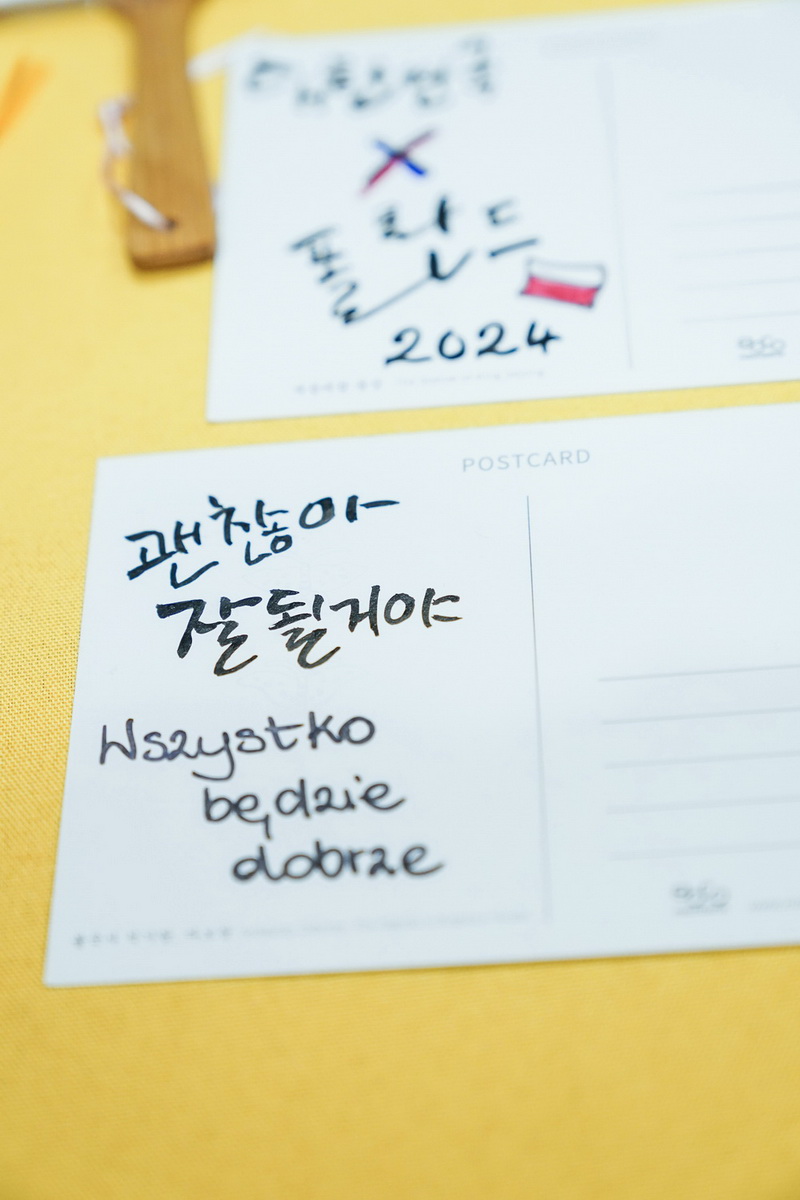 폴란드
2024
POSTCARD
괜찮아
잘 될거야
Wszystko
będzie
dobrze